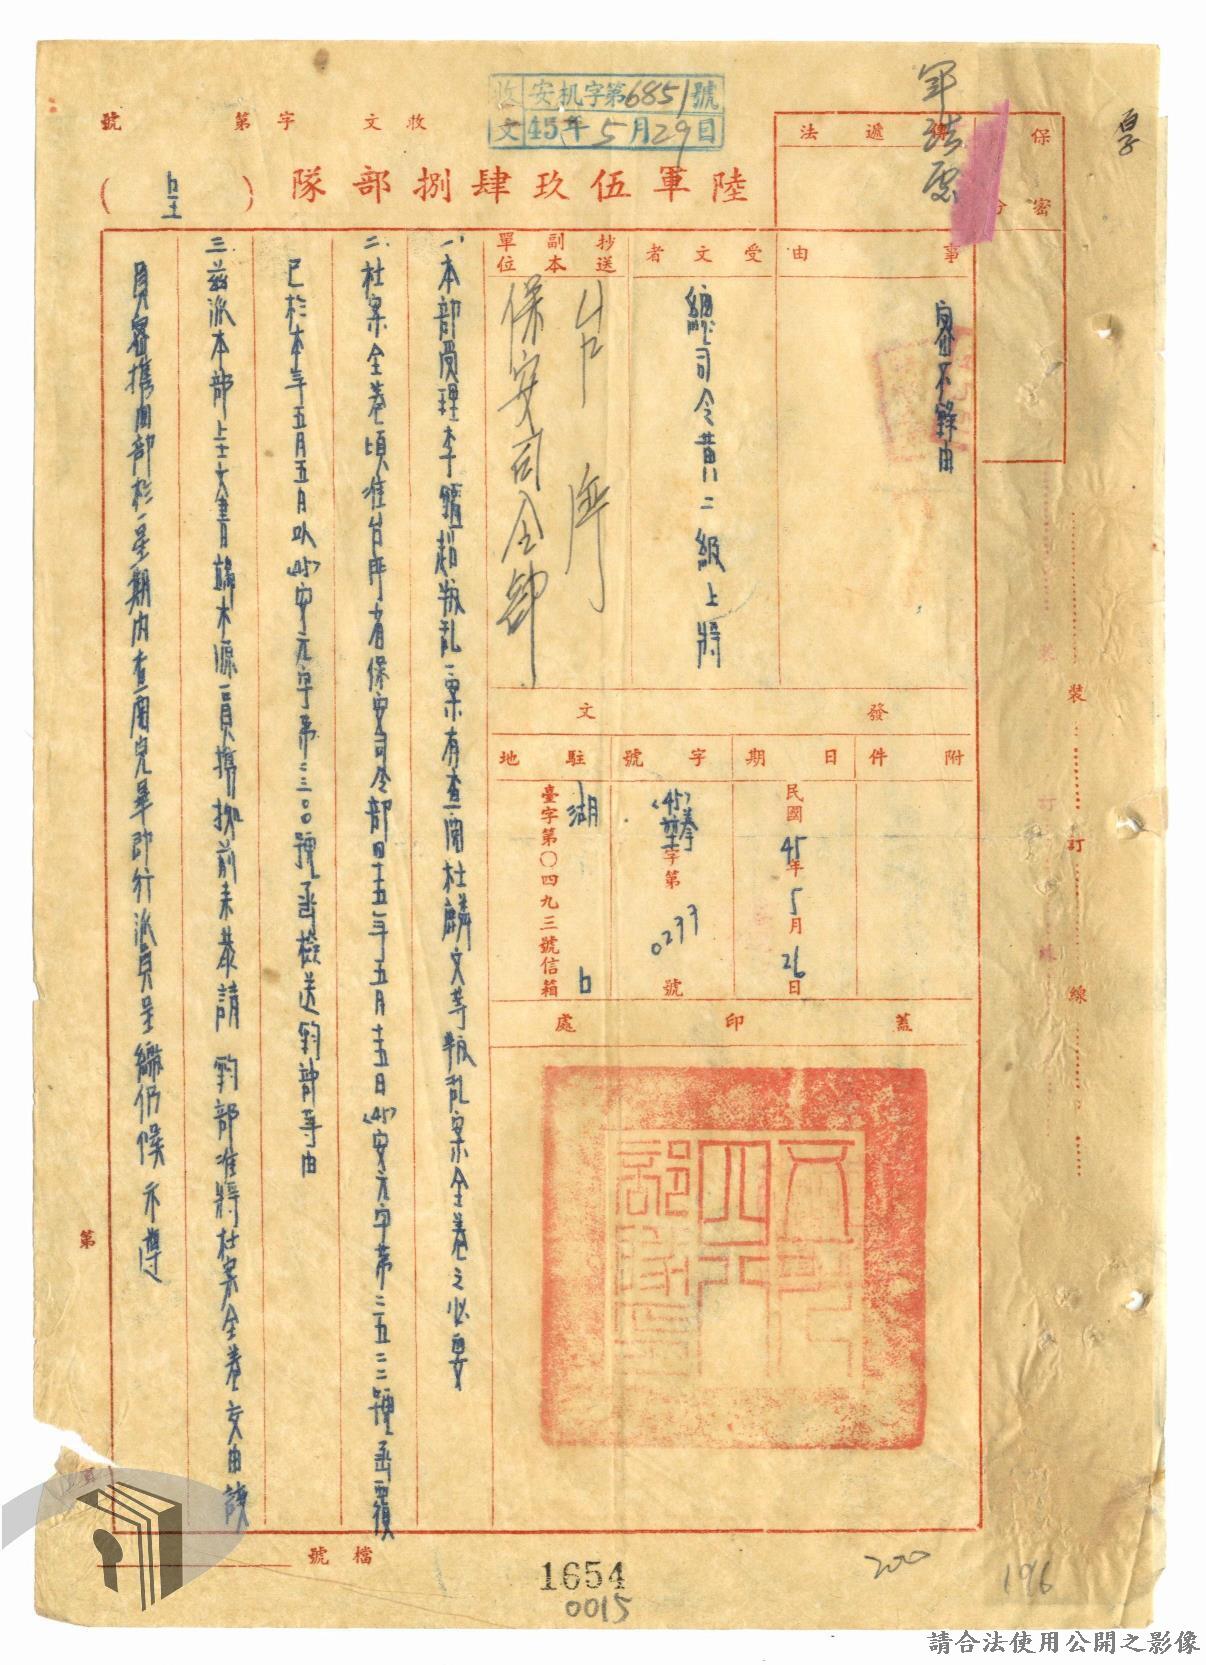 收文 安机字第6851號
45年5月29日
收文 字第 號
陸軍伍玖肆捌部隊
(呈)
軍法處
保密
傳遞法
事由
密不錄由
受文者
總司令黃二級上將
抄送副本單位
保安司令部
發文
附件
日期
民國45年5月26日
字號
字第0233號
駐地
湖口
臺字第〇四九三號信箱
蓋印處
一、本部受理李鑑超叛乱一案有查閱杜麟文等叛乱案全卷之必要
二、杜案全卷頃准台灣省保安司令部四十五年五月十五日(45)安元字第二五二二號函覆
已於本年五月五日以(45)安元字第二三〇號函檢送 鈞部等由
三、茲派本部上士文書 木源一員攜 前来恭請 鈞部准將杜案全卷交由該
員密攜回部於一星期內查閱完畢即行派員呈繳仍候 示遵
裝
訂
線
第
頁
檔號
1654
0015
200
196
請合法使用公開之影像